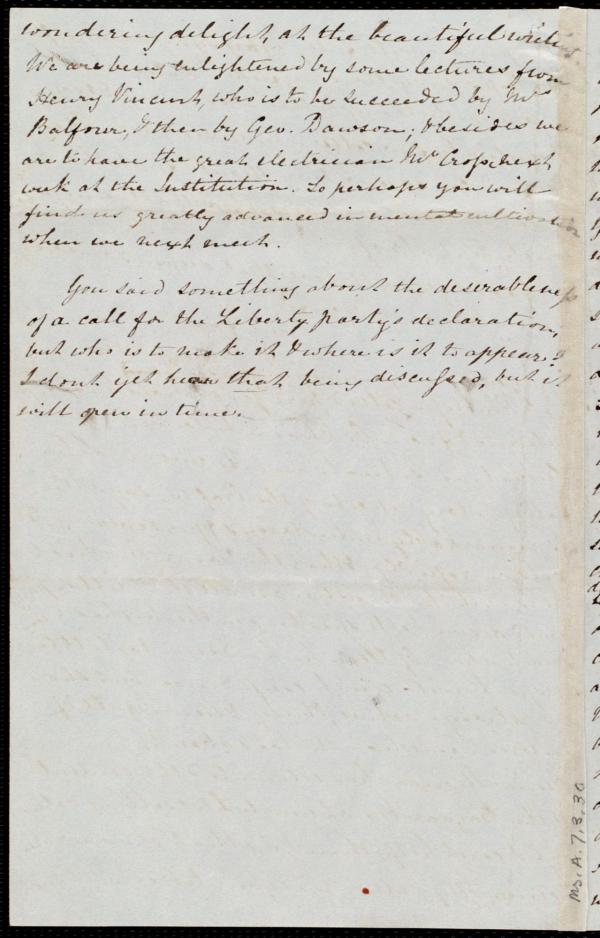 wondering delight, at the beautiful writing.
We are being enlightened by some lectures from
Henry Vincent, who is to be succeeded by Mrs
Balfour, & then by Geo. Dawson; & besides we
are to have the great electrician Mr Crosse next
week at the Institution. So perhaps you will
find us greatly advanced in mental cultivation
when we next meet.
You said something about the desirableness
of a call for the Liberty party's declaration,
but who is to make it & where is it to appear?
I dont yet hear that being discussed, but it
will open in time.
Ms. A. 7, 3, 30